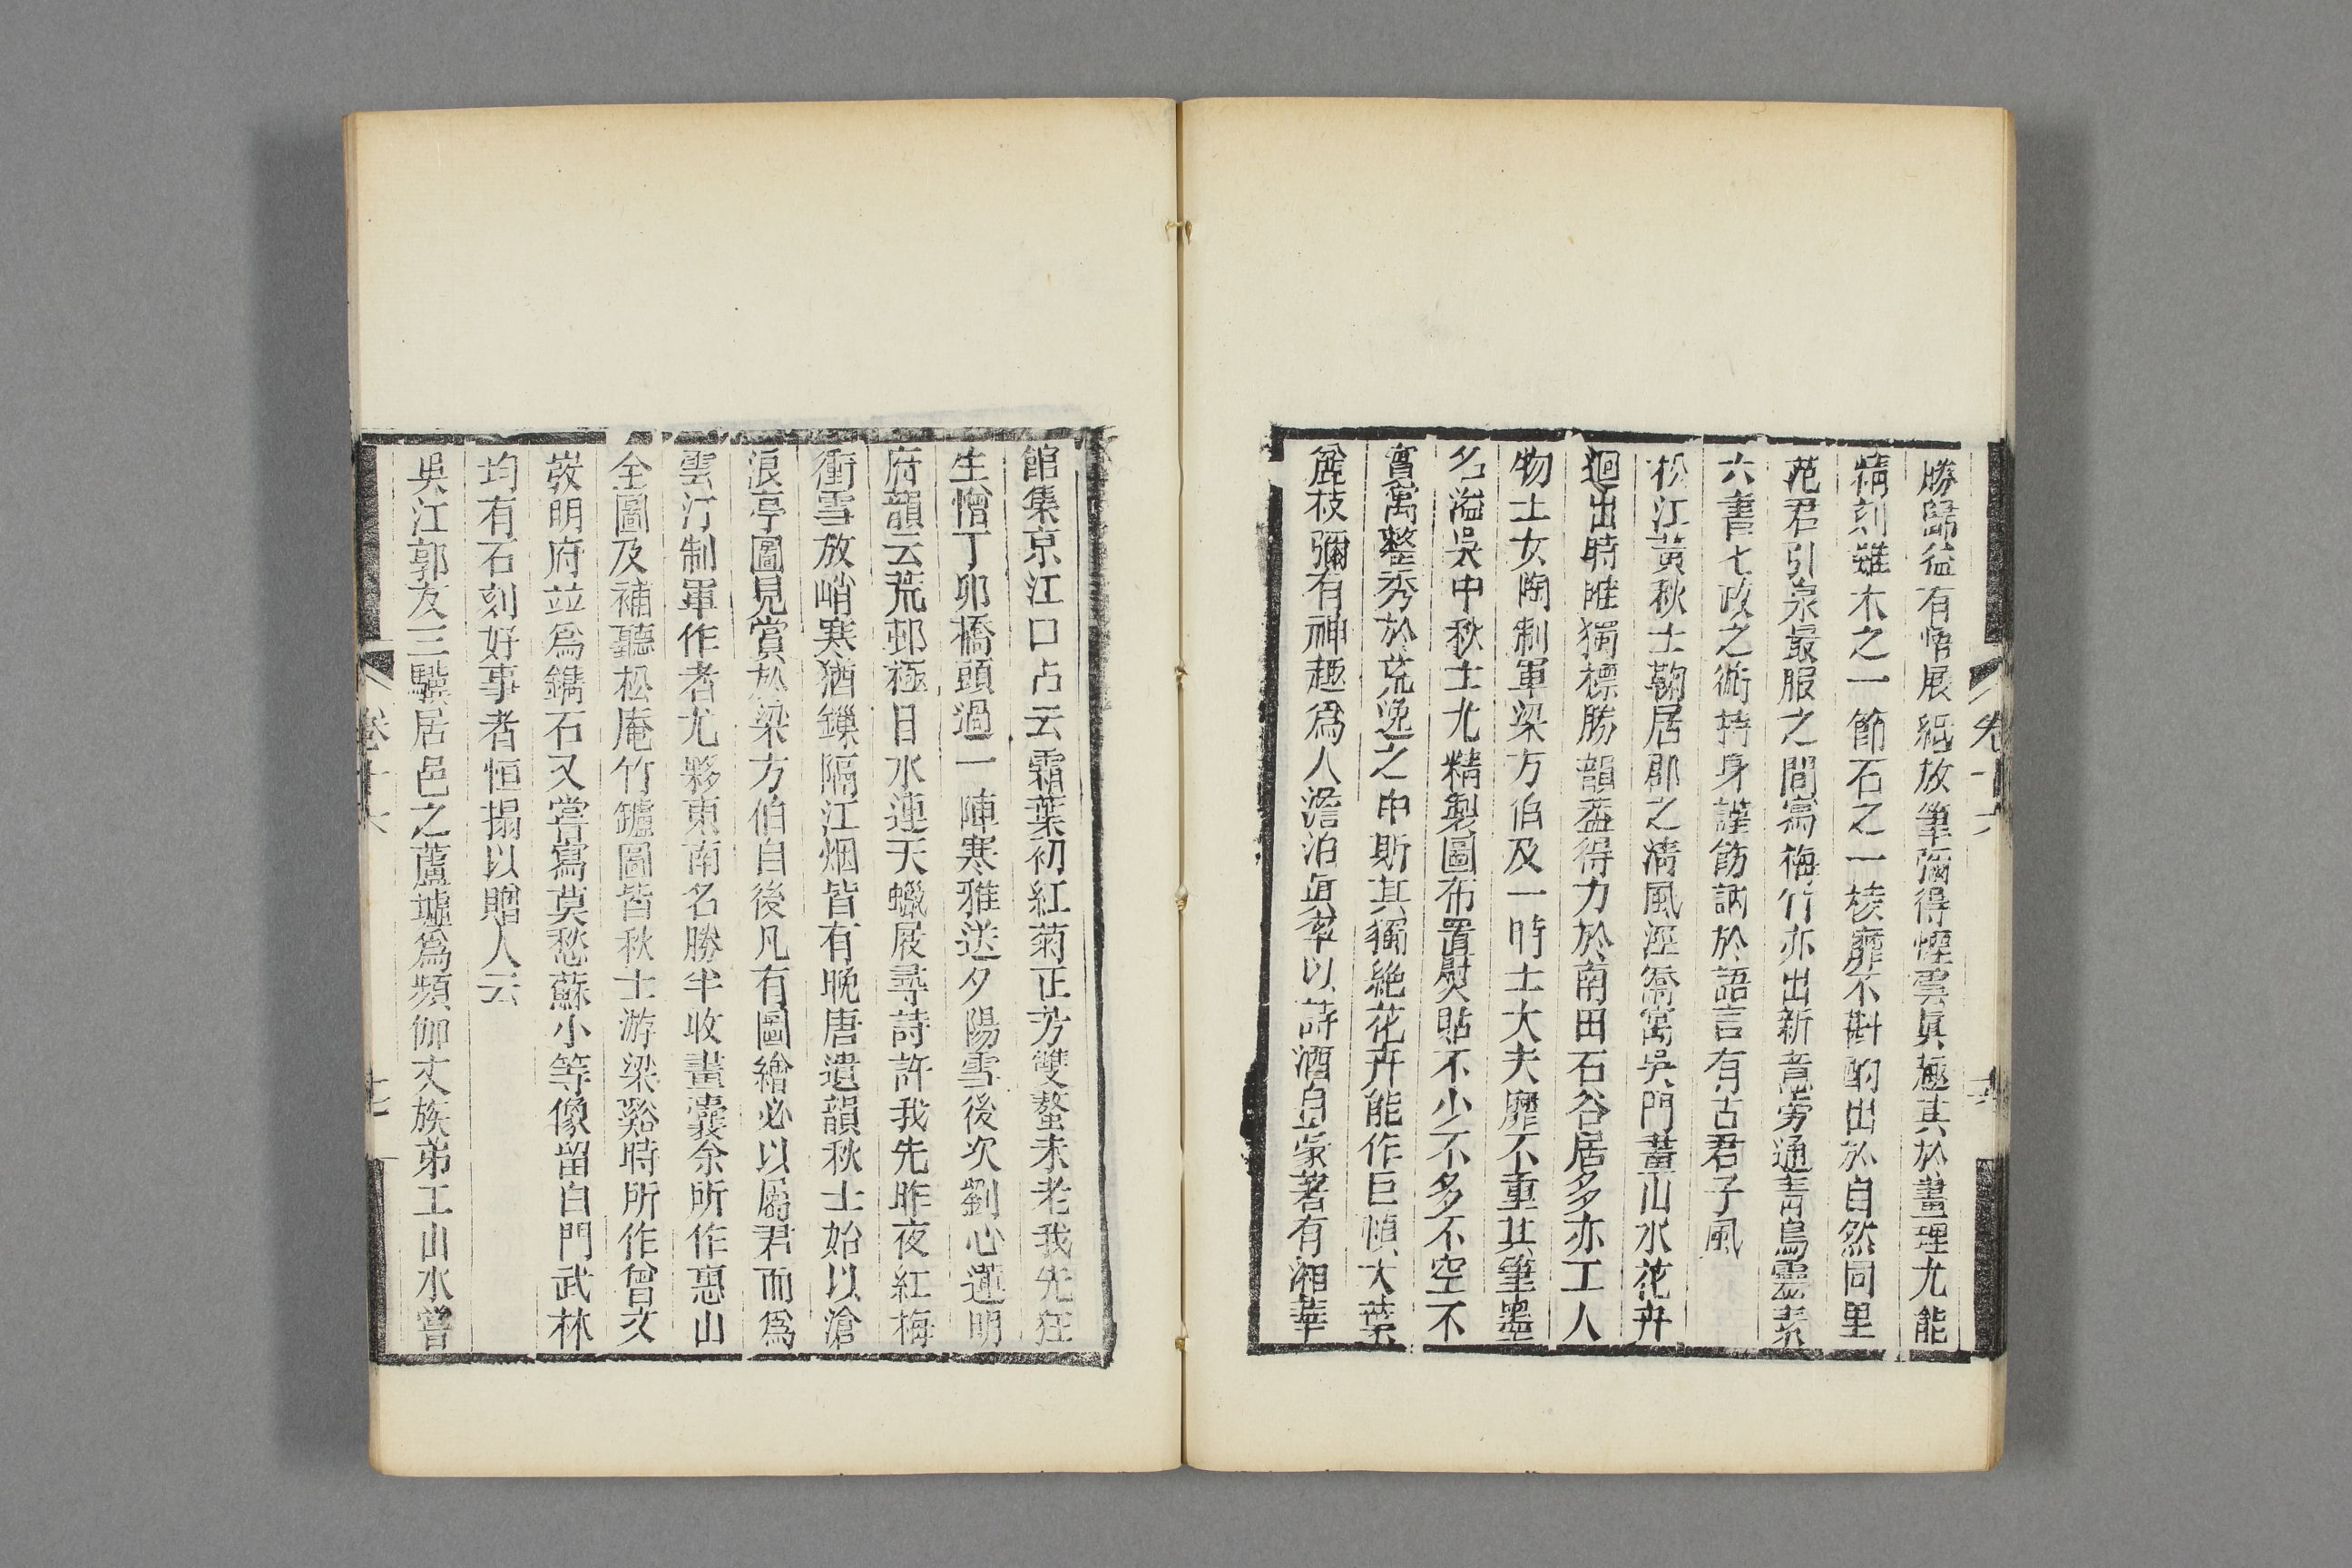 勝歸益有悟展紙放筆彌得煙雲眞極其於畫理尤能
精刻雖木之一節石之一棱靡不斟酌出於自然同里
范君引泉最服之間寫梅竹亦出新意旁通靑鳥靈素
六書七政之術持身謹飭訥於語言有古君子風
松江黃秋士鞠居郡之淸風涇喬寓吳門畫山水花卉
迴出時畦獨標勝韻葢得力於南田石谷居多亦工人
物士女陶制軍梁方伯及一時士大夫靡不重其筆墨
名溢吳中秋士尤精製圖布置熨貼不少不多不空不
實寓整秀於荒逸之中斯其獨絶花卉能作巨幀大葉
麄枝彌有神趣爲人澹泊眞率以詩酒自豪著有湘華
卷十六
館集京江口占云霜葉初紅菊正芳雙螯未老我先狂
生憎丁卯橋頭過一陣寒雅送夕陽雪後次劉心蓮明
府韻云荒邨極目水連天蠟屐尋詩許我先昨夜紅梅
衝雪放峭寒猶鏁隔江烟皆有晚唐遺韻秋士始以滄
浪亭圖見賞於梁方伯自後凡有圖繪必以屬君而爲
雲汀制軍作者尤夥東南名勝半收畫囊余所作惠山
全圖及補聽松庵竹鑪圖皆秋士游梁谿時所作曾文
敳明府並爲鐫石又嘗寫莫愁蘇小等像留白門武林
均有石刻好事者恒搨以贈人云
吳江郭友三驥居邑之蘆墟爲頻伽丈族弟工山水嘗
卷十六
十七